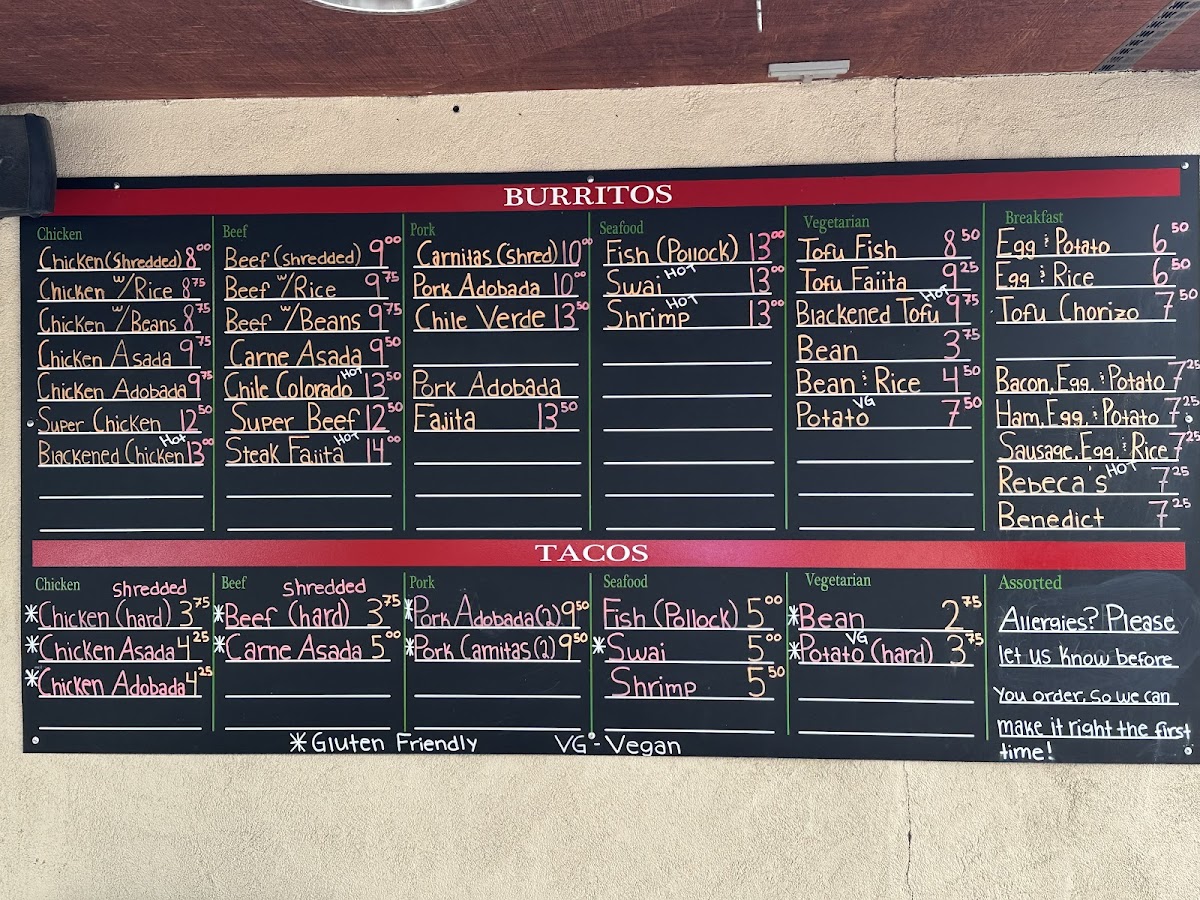 BURRITOS
Chicken
Chicken (Shredded) 8⁰⁰
Chicken w/Rice 8⁷⁵
Chicken w/Beans 8⁷⁵
Chicken Asada 9⁷⁵
Chicken Adobada 9⁷⁵
Super Chicken 12⁵⁰
Blackened Chicken Hot 13⁰⁰
Beef
Beef (shredded) 9⁰⁰
Beef w/Rice 9⁷⁵
Beef w/Beans 9⁷⁵
Carne Asada 9⁵⁰
Chile Colorado HOT 13⁵⁰
Super Beef 12⁵⁰
Steak Fajita HOT 14⁰⁰
Pork
Carnitas (Shred) 10⁰⁰
Pork Adobada 10⁰⁰
Chile Verde 13⁵⁰
Pork Adobada
Fajita 13⁵⁰
Seafood
Fish (Pollock) 13⁰⁰
Swai HOT 13⁰⁰
Shrimp HOT 13⁰⁰
Vegetarian
Tofu Fish 8⁵⁰
Tofu Fajita 9²⁵
Blackened Tofu Hot 9⁷⁵
Bean 3⁷⁵
Bean & Rice 4⁵⁰
Potato VG 7⁵⁰
Breakfast
Egg & Potato 6⁵⁰
Egg & Rice 6⁵⁰
Tofu Chorizo 7⁵⁰
Bacon, Egg, & Potato 7²⁵
Ham, Egg, & Potato 7²⁵
Sausage, Egg, & Rice 7²⁵
Rebeca's HOT 7²⁵
Benedict 7²⁵
TACOS
Chicken
Shredded
*Chicken (hard) 3⁷⁵
*Chicken Asada 4²⁵
*Chicken Adobada 4²⁵
Beef
Shredded
*Beef (hard) 3⁷⁵
*Carne Asada 5⁰⁰
Pork
*Pork Adobada (2) 9⁵⁰
*Pork Carnitas (2) 9⁵⁰
Seafood
Fish (Pollock) 5⁰⁰
*Swai 5⁰⁰
Shrimp 5⁵⁰
Vegetarian
*Bean 2⁷⁵
*Potato VG (hard) 3⁷⁵
Assorted
Allergies? Please
let us know before
You order, So we can
make it right the first
time!
*Gluten Friendly
VG - Vegan